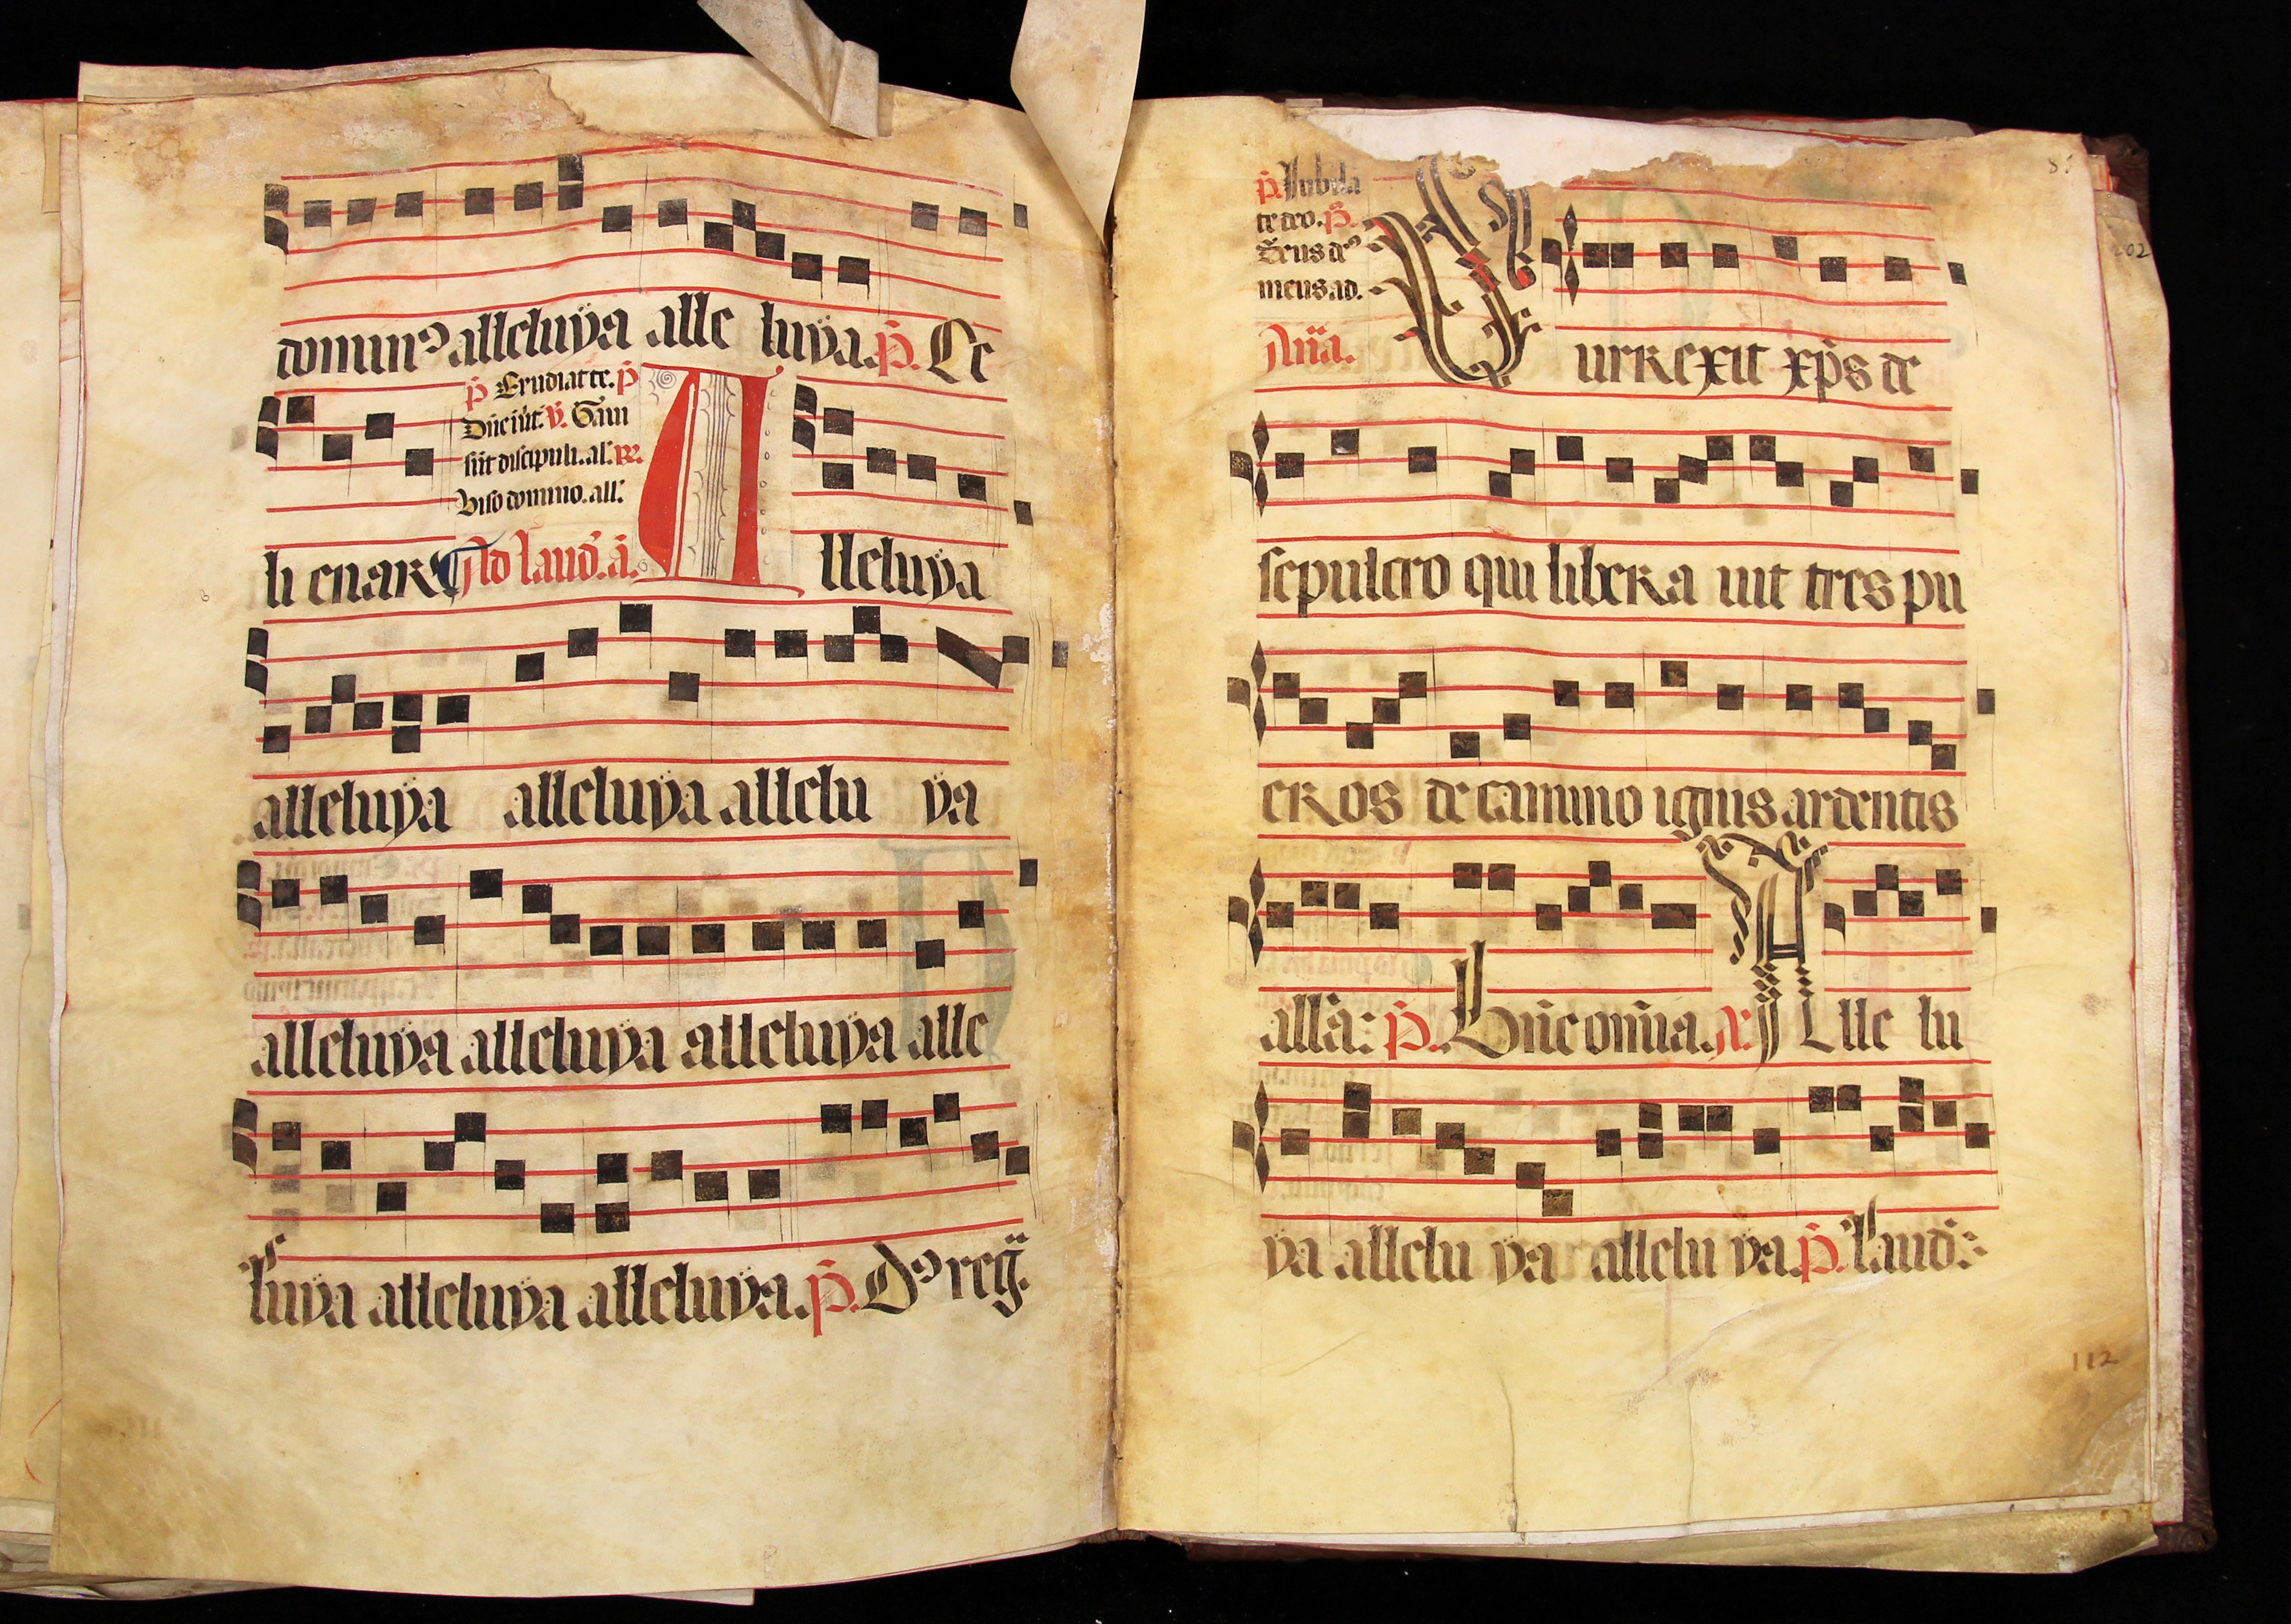 dominꝰ alleluÿa alle luÿa. p̄. Ce
p̄ Erudiat te. p̄
Dn̄e in̄t. v̄. Gaui
si sūt discipuli. al'. R.
Viso domino. all'.
li enarꝰ Ad laud'. a. A lleluÿa
alleluÿa alleluÿa allelu ÿa
alleluÿa alleluÿa alleluÿa alle
luÿa alleluÿa alleluÿa. p̄. Dꝰ reg̈.
81
202
p̄. Iubila
te deo. p̄.
Deus dꝰ
meus ad.
Añā. S urrexit xp̄s de
sepulcro qui libera uit tres pu
eros de camino ignis ardentis
all'a: p̄. Bn̄e om̄ia. a. A lle lu
ÿa allelu ÿa allelu ÿa. p̄. Laud:
112